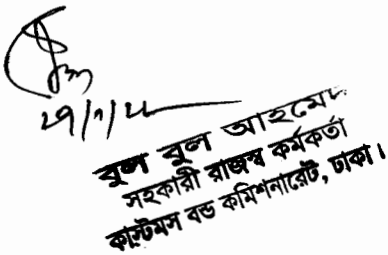 বুল বুল আহমেদ
সহকারী রাজস্ব কর্মকর্তা
কাস্টমস বন্ড কমিশনারেট, ঢাকা।